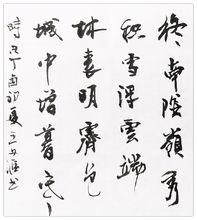 終南陰嶺秀
积雪浮雲端
林表明霽色
城中增暮寒
時丁酉初夏王书